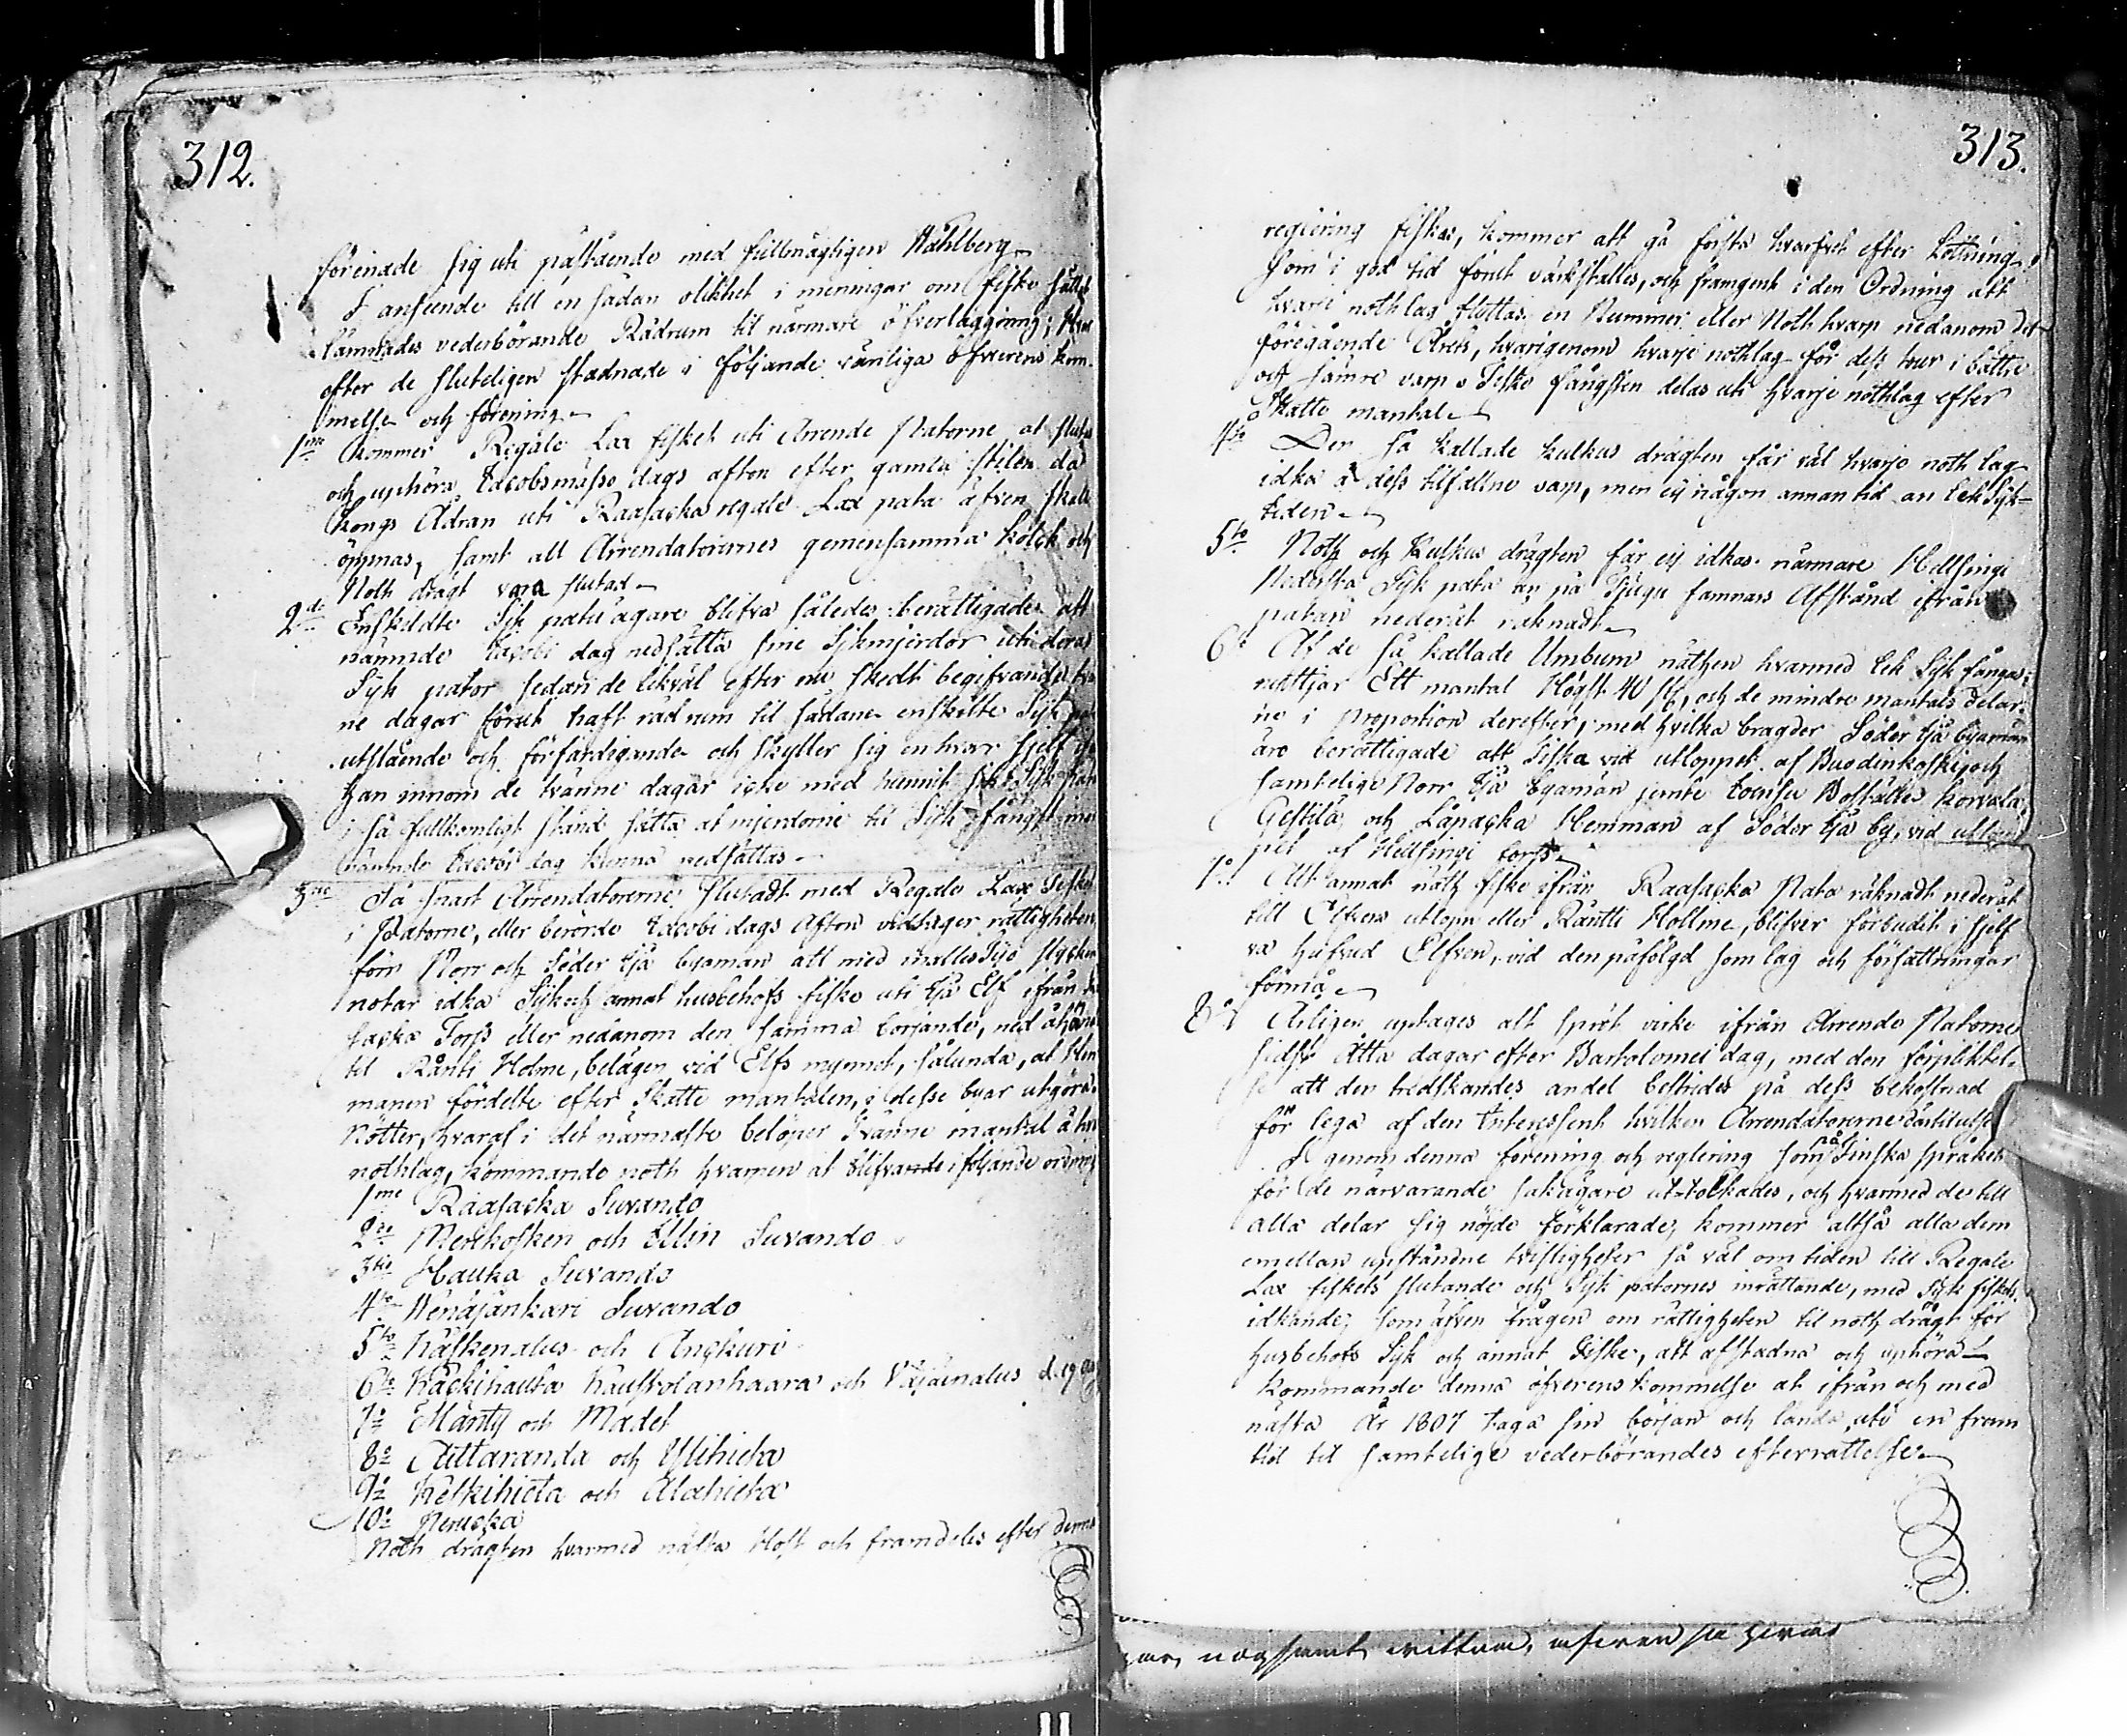 312.
förenade sig uti påstående med fullmägtigen Wåhlberg
I anseende till en sådan olikhet i meningar om fiske sättet
lämnades vederbörande Rådrum til närmare öfverläggning; 
efter de sluteligen stadnade i följande vänliga öfverenskom-
melse och förening
1mo Kommer Regale Lax fisket uti Arrende Patorne at slutas
och uphöra Jacobsmässo dags afton efter gamla stilen då
Kongs Ådran uti Raasacka regale Lax pata äfven skall
öppnas, samt all Arrendatorernes gemensamma Kolck och
Noth drägt vara slutad
2do Enskildte Sjk patu ägare blifva således berättigade att
nämnde Jacobi dag nedsätta sine Sjkmjerdor uti deras
Sijk pator sedan de likväl efter nu skedt begifvande två-
ne dagar förut haft rådrum til sådane enskilte Sijk 
utslående och förfärdigande och skyller sig en hvar sjelf 
han innom de tvänne dagar icke med hunnit sin Sijk 
i så fullkomligt stånd sätta at mjerdorne til Sijk fångst 
nämnde Jacobi dag kunna nedsättas
3tio Så snart Arrendatorerne slutadt med Regale Lax Fisket
i Patorne, eller berörde Jacobi dags Afton vidtager rättigheten
för Norr och Söder Ijå byamän att med 
notar idka Sijk och annat husbehofs fiske uti Ijå Elf ifrån 
sacka Forss eller nedanom den samma börjande, ned åt
til Räntti Holme, belägen vid Elfs mynnet, sålunda, at Hem-
manen fördelte efter Skatte mantalen, i desse byar utgöra
Nötter, hvaraf i det närmaste belöper Tvänne mantal å hvar
nothlag, kommande noth hvarpen at blifva i följande ordning
1mo Raasacka Suvando
2do Merikosken och Illin Suvando
3tio Hauka Suvando
4to Wenäjänkari Suvando
5to Käskenalus och Anckuri
6to Käckihauta Kauppolanhaara och Wäjäinalus
7o Mänty och Mädet
8o Aittaranda och Ylihieta
9o Keskihieta och Alahieta
10o Perucka
Noth drägten hvarmed nästa Höst och framdeles efter denna
313.
reglering fiskas, kommer att gå första hvarfvet efter Lottning
som i god tid förut värkställes, och framgent i den Ordning att
hvarje nothlag flyttas en Nummer eller Noth hvarp nedanom det
föregående Årets, hvarigenom hvarje nothlag får dess tour i bättre
och sämre varp o Fiske fångsten delas uti hvarje nothlag efter
Skatte mantal
4to Den så kallade Kulkus drägten får väl hvarje noth lag
idka å dess tilfallne varp, men ej någon annan tid än lek Sijk-
tiden
5to Noth och Kulkus drägten får ej idkas närmare Hellsingi
Nedersta Sijk pata än på Tjugu famnars Afstånd ifrån
patan nederåt räknadt
6to Af de så kallade Umbum näthen hvarmed lek Sijk fångas,
nyttjar Ett mantal Högst 40 st, och de mindre mantals delar-
ne i proportion derefter, med hvilka bragder Söder Ijå byamän
äro berättigade att Fiska vid utloppet af Buodinkoski och
samtelige Norr Ijå byamän jemte Boställes Korvala
Gestilä och Läpacka Hemman af Söder Ijå by, vid utlop-
pet af Hellsingi Forss
7o Allt annat noth fiske ifrån Raasacka Pata räknadt nederåt
till Elfvens utlopp eller Räntti Hollme, blifver förbudit i sjelf
va hufvud Elfven, vid den påföljd som lag och författningar
förmå
8o Årligen uptages alt spröt virke ifrån Arrende Patorne
sidst Åtta dagar efter Bartolomei dag, med den förpliktel-
se att den tredskandes andel bestrides på dess bekostnad
för lega af den Interessent hvilken Arrendatorerne 
I genom denna förening och reglering som på Finska språket
för de närvarande sakägare ut-tolkades, och hvarmed de till
alla delar sig nöjde förklarade, kommer altså alla dem
emellan upståndne tvistigheter så väl om tiden till Regale
Lax fiskets slutande och Sijk patornes inrättande, med Sijk fiskets
idkande, som äfven frågan om rättigheten til noth drägt för
husbehofs Sijk och annat Fiske, att afstadna och uphöra
Kommande denna öfverenskommelse at ifrån och med
nästa År 1807 taga sin början och lända uti en fram
tid til samtelige vederbörandes efterrättelse